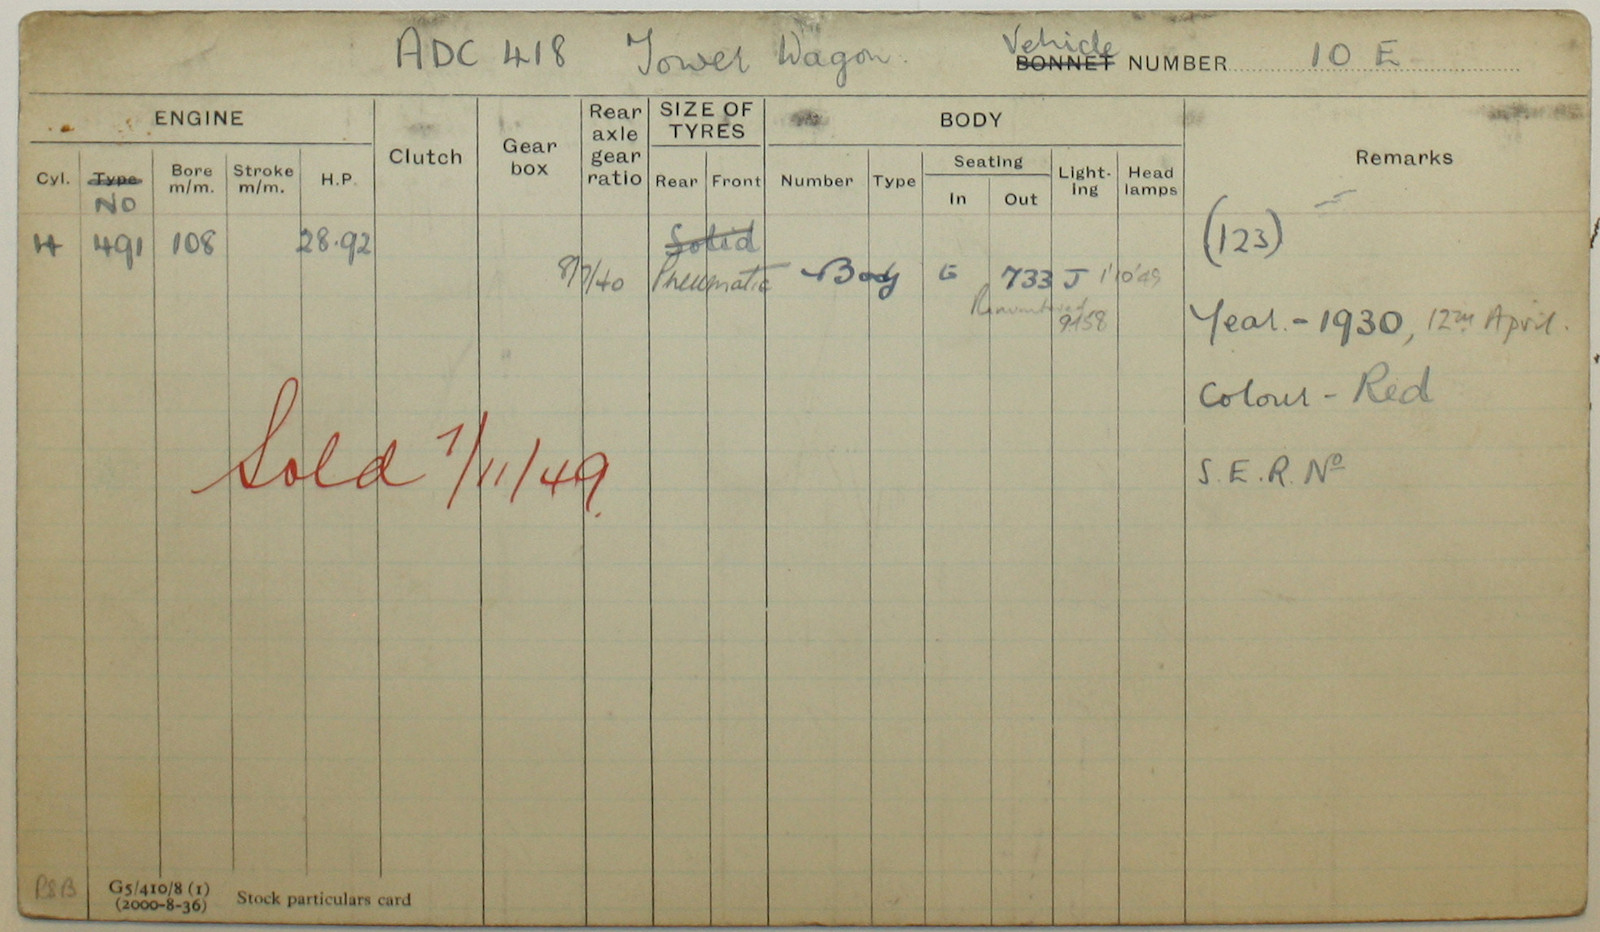 ADC 418 Tower Wagon. Vehicle BONNET NUMBER 10 E
ENGINE
Clutch
Gear box
Rear axle gear ratio
SIZE OF TYRES
BODY
Remarks
Cyl. Type NO Bore m/m. Stroke m/m. H.P.
Rear Front
Number Type
Seating
In Out
Light-ing
Head lamps
4 491 108 28.92 Solid (123)
8/7/40 Pneumatic Body G 733 J 1'10'49
Renumbered
9158
Year. - 1930, 12th April.
Colour - Red
S.E.R. No
Sold 7/11/49.
P8B
G5/410/8 (1)
(2000-8-36)
Stock particulars card